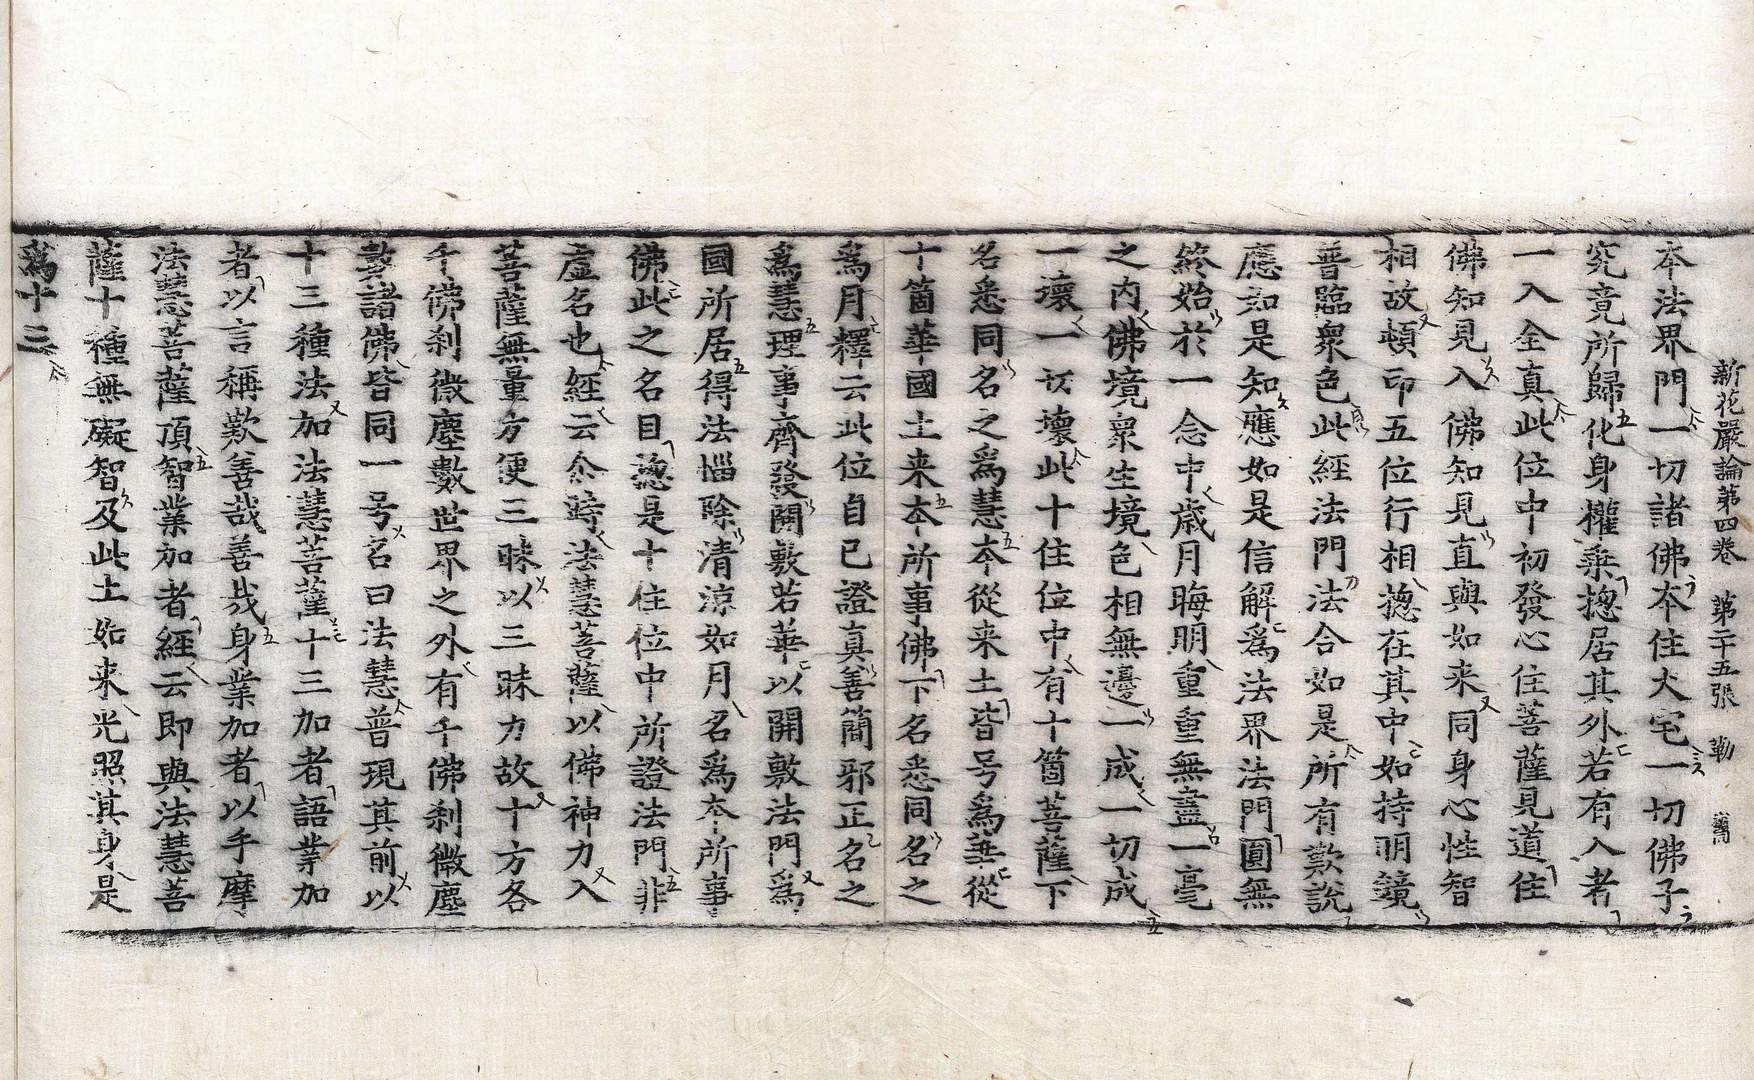 新花嚴論第四卷 第二十五張 勒
本法界門一切諸佛夲住大宅一切佛子
究竟所歸化身權乘揔居其外若有入者
一入全真此位中初發心住菩薩見道住
佛知知見入佛知見直與如来同身心性智
相故頓印五位行相揔在其中如持明鏡
普臨衆色此經法門法合如是所有歎說
應如是知應如是信解爲法界法門圓無
終始於一念中歲月晦明重重無盡一毫
之内佛境衆生境色相無邊一成一切成
一壞一切壞此十住位中有十箇菩薩下
名悉同名之爲慧夲從来土皆号爲華從
十箇華國土来夲所事佛下名悉同名之
爲月釋云此位自已證真善簡邪正名之
爲慧理事齊發開敷若華以開敷法門爲
國所居得法惱除清涼如月名爲夲所事
佛此之名目揔是十住位中所證法門非
虛名也經云尒時法慧菩薩以佛神力入
菩薩無量方便三昧以三昧力故十方各
千佛刹微塵數世界之外有千佛刹微塵
數諸佛皆同一号名曰法慧普現其前以
十三種法加法慧菩薩十三加者語業加
者以言稱歎善哉善哉身業加者以手摩
法慧菩薩頂智業加者經云即與法慧菩
薩十種無礙智及此土如来光照其身是
爲十三